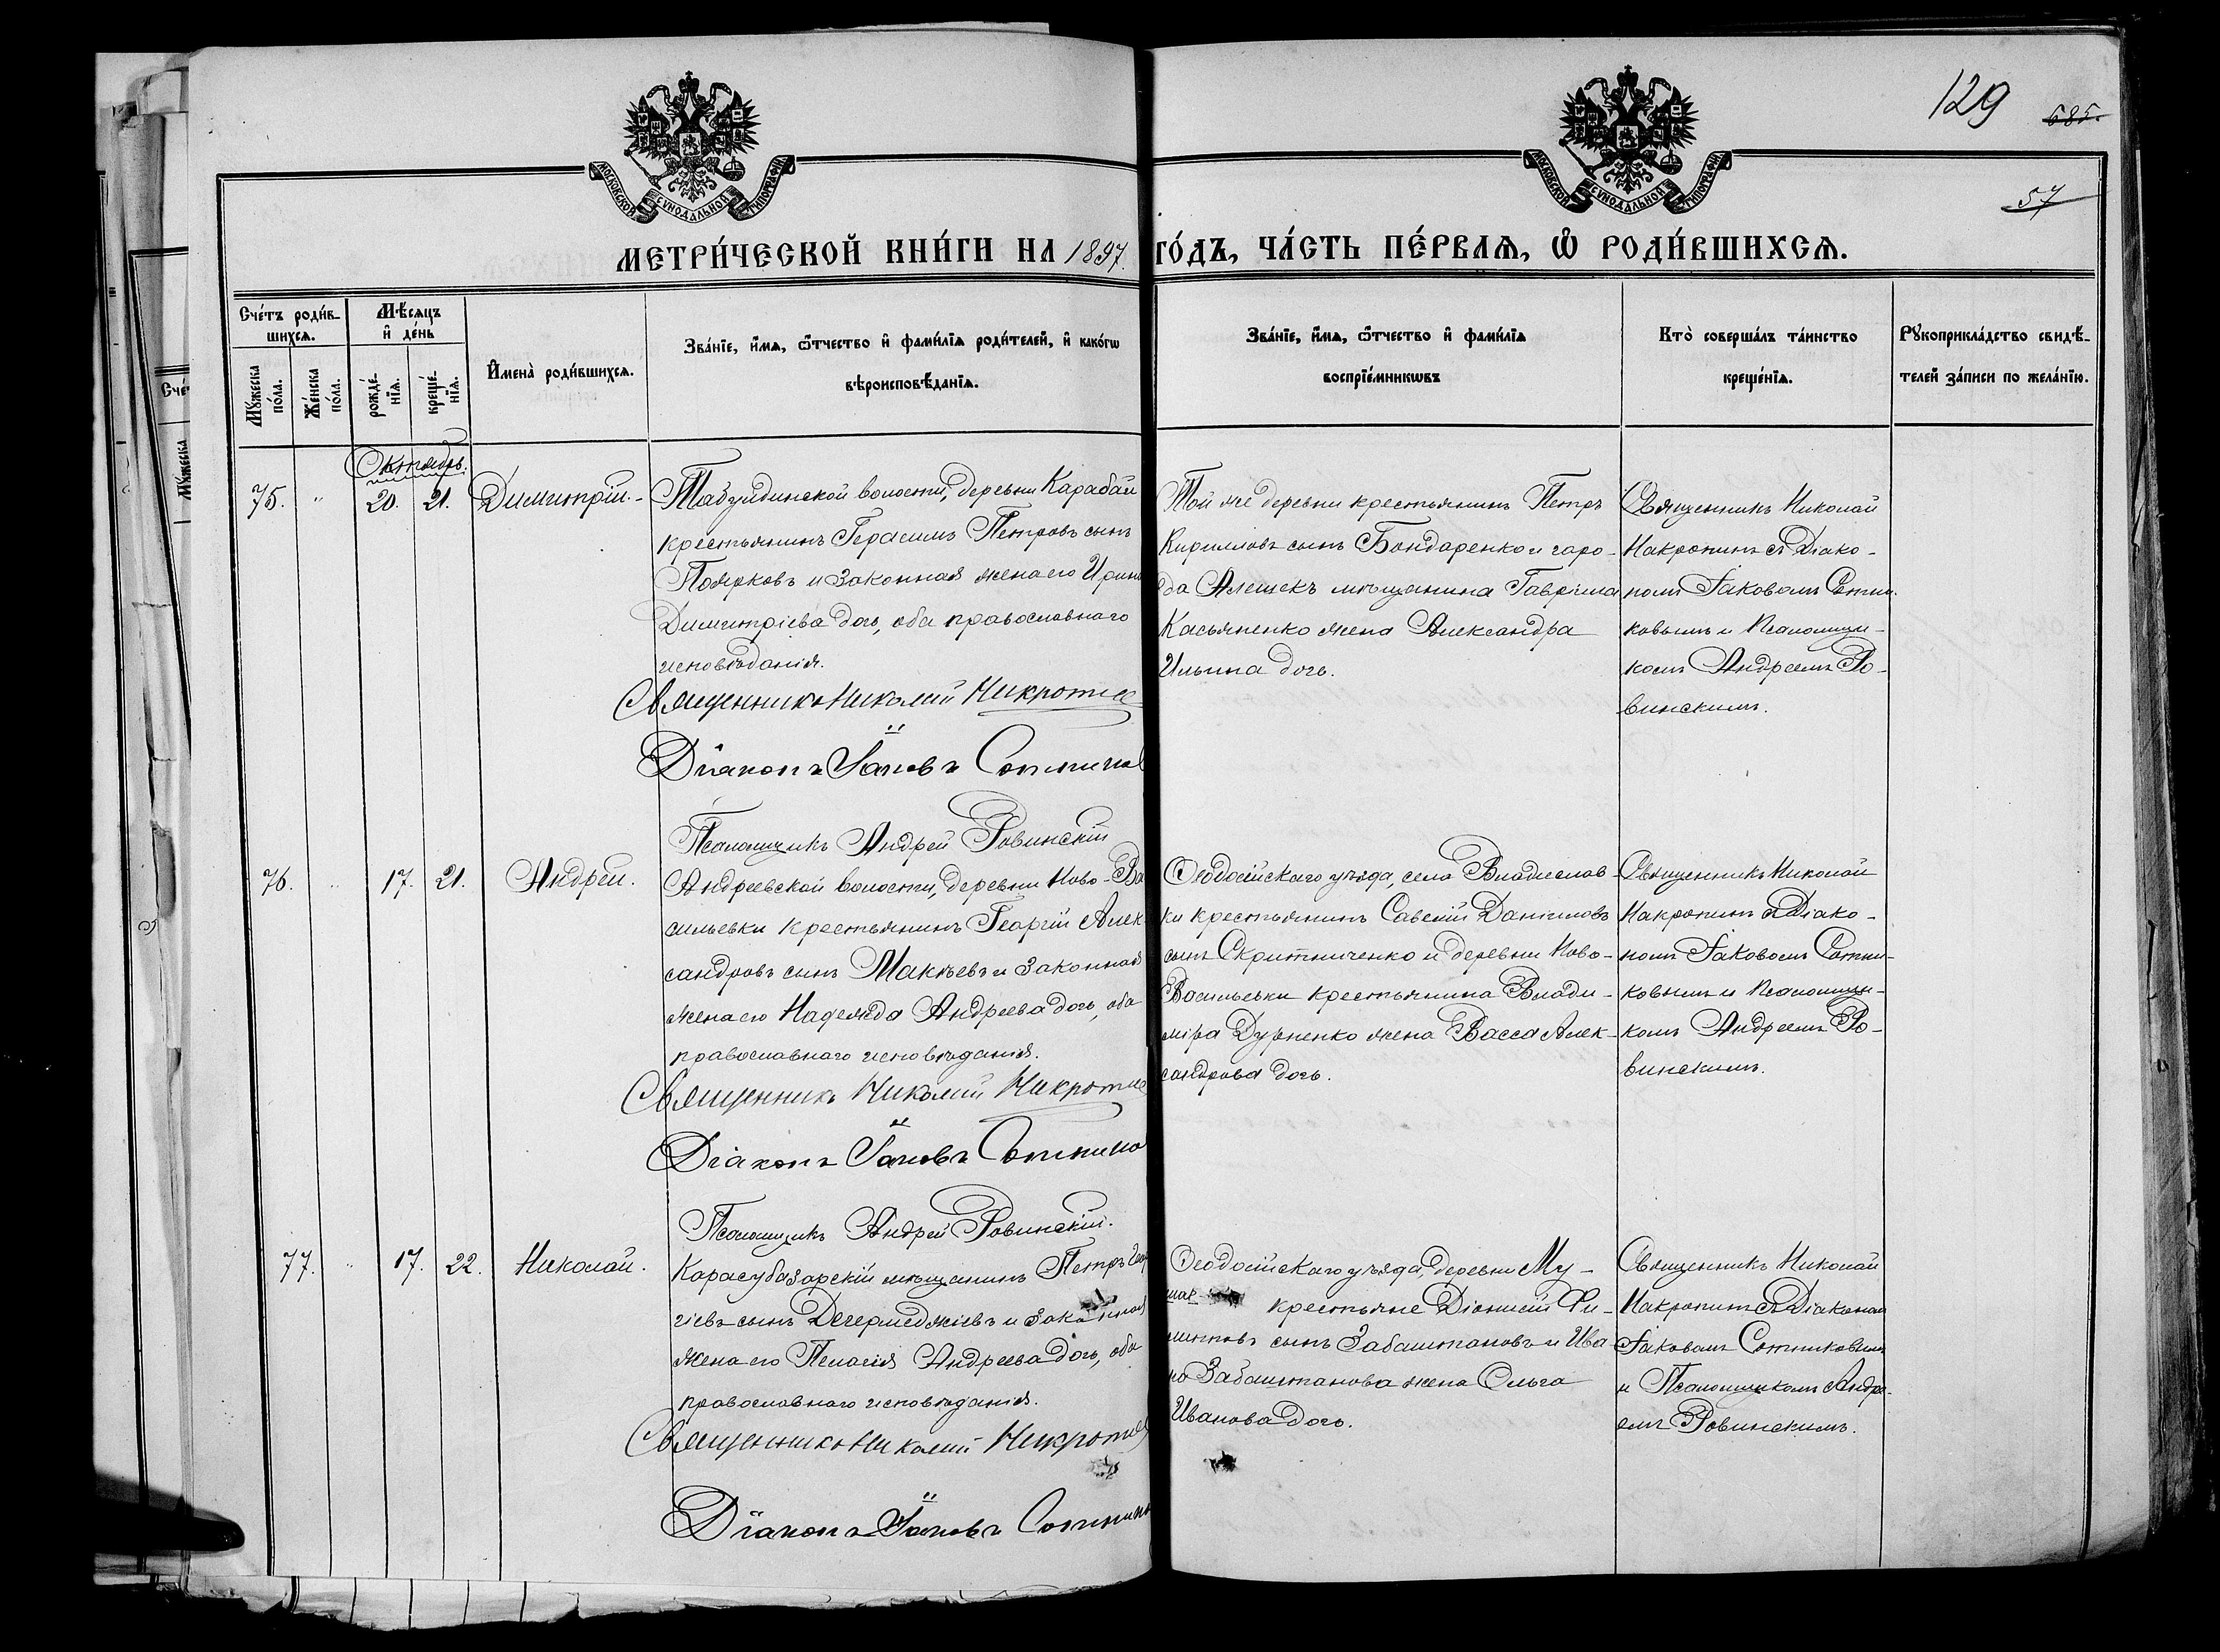 129 685.
57
МОСКОВСКОЙ СѴНОДАЛЬНОЙ ТИПОГРАФІИ
МОСКОВСКОЙ СѴНОДАЛЬНОЙ ТИПОГРАФІИ
МЕТРИ́ЧЕСКОЙ КНИ́ГИ НА 1897. ГО́ДЪ, ЧА́СТЬ ПЕ́РВАЯ, Ѽ РОДИ́ВШИХСЯ.
Сче́тъ роди́в-
шихся.
Мꙋ́жеска по́ла.
Же́нска по́ла.
Мѣ́сяцъ
и҆ де́нь
рожде́-
нїя.
креще́-
нїя.
И҆мена̀ роди́вшихся.
Зва́нїе, и҆́мя, ѻ҆́тчество и҆ фами́лїя роди́телей, и҆ како́гѡ
вѣроисповѣ́данїя.
Зва́нїе, и҆́мя, ѻ҆́тчество и҆ фами́лїя
воспрїе́мникѡвъ
Кто̀ соверша́лъ та́инство
креще́нїя.
Рꙋкоприкла́дство свидѣ́-
телей за́писи по жела́нїю.
Октябрь.
75. " 20. 21. Димитрій.
Табулдинской волости, деревни Карабай
крестьянинъ Герасимъ Петровъ сынъ
Поярковъ и законная жена его Ирина
Димитріева дочь, оба православнаго
исповѣданія.
Священникъ Николай
Діаконъ Іаковъ
Псаломщикъ Андрей Ровинскій
Той же деревни крестьянинъ Петръ
Кирилловъ сынъ Бондаренко и горо-
да Алешекъ мѣщанина Гавріила
Касьяненко жена Александра
Ильина дочь.
Священникъ Николай
Накропинъ съ Діако-
номъ Іаковомъ Сотни-
ковымъ и Псаломщи-
комъ Андреемъ Ро-
винскимъ.
76. " 17. 21. Андрей.
Андреевской волости, деревни Ново-Ва
сильевки крестьянинъ Георгій Алек
сандровъ сынъ Макѣевъ и законная
жена его Надежда Андреева дочь, оба
православнаго исповѣданія.
Священникъ Николай
Діаконъ Іаковъ
Псаломщикъ Андрей Ровинскій.
Ѳеодосійскаго уѣзда, села Владислав-
ки крестьянинъ Савелій Даніиловъ
сынъ Скрипниченко и деревни Ново-
Васильевки крестьянина Влади-
міра Дурненко жена Васса Алек-
сандрова дочь.
Священникъ Николай
Накропинъ съ Діако-
номъ Іаковомъ Сотни-
ковымъ и Псаломщи-
комъ Андреемъ Ро-
винскимъ.
77. " 17. 22. Николай.
Карасубазарскій мѣщанинъ Петръ Геор
гіевъ сынъ Дегермеджіевъ и законная
жена его Пелагія Андреева дочь, оба
православнаго исповѣданія.
Священникъ Николай
Діаконъ Іаковъ
Ѳеодосійскаго уѣзда, деревни Му-
шай крестьяне Діонисій Фи-
липповъ сынъ Забаштановъ и Ива
на Забаштанова жена Ольга
Иванова дочь.
Священникъ Николай
Накропинъ съ Діакономъ
Іаковомъ Сотниковымъ
и Псаломщикомъ Андре-
емъ Ровинскимъ.